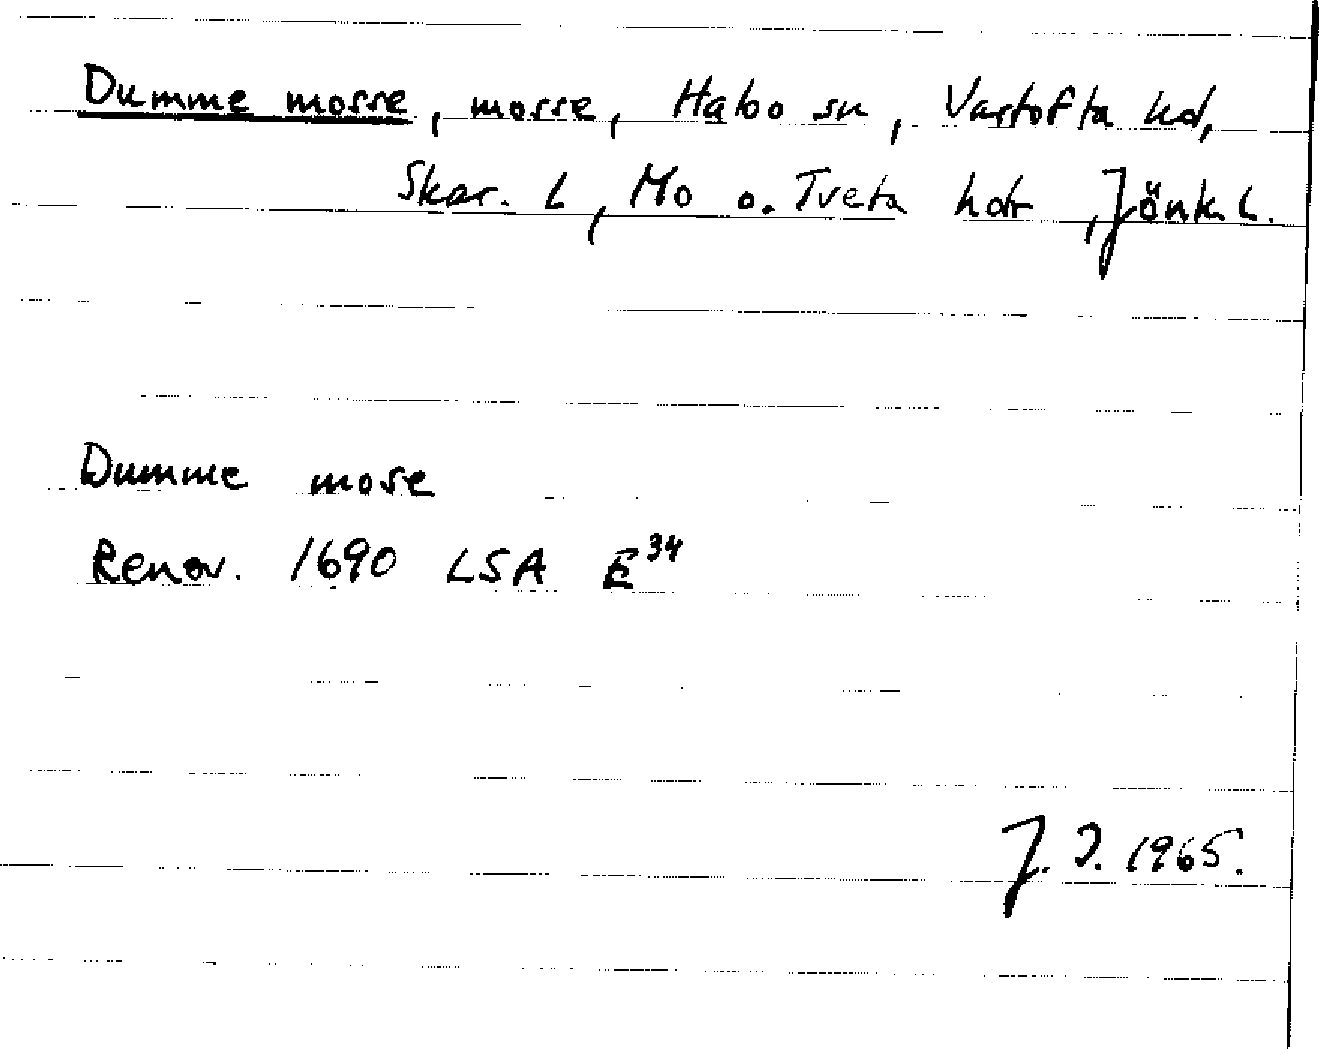 Dumme mosse, mosse, Habo sn, Vartofta hd,
Skar. L, Mo o. Tveta hdr, Jönk. L.
Dumme mose
Renov. 1690 LSA E34
J. J. 1965.